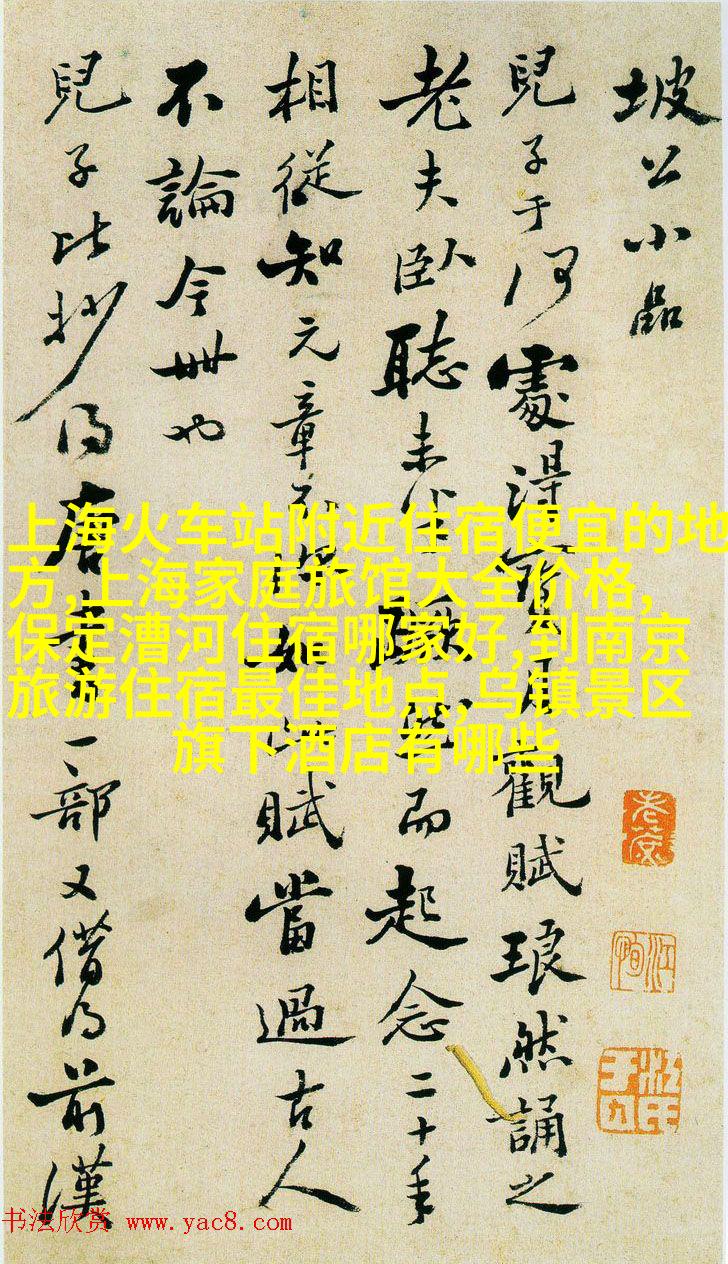 坡公小品
兒子于何處得寶月觀賦琅然誦之
老夫臥聽未半躍然而起念二十年
相從知元章不盡如此賦當過古人
不論今世也
兒子比抄得唐書一部又借得前漢
上海火车站附近住宿便宜的地
方,上海家庭旅馆大全价格,
保定漕河住宿哪家好,到南京
旅游住宿最佳地点,乌镇景区
旗下酒店有哪些
书法欣赏 www.yac8.com